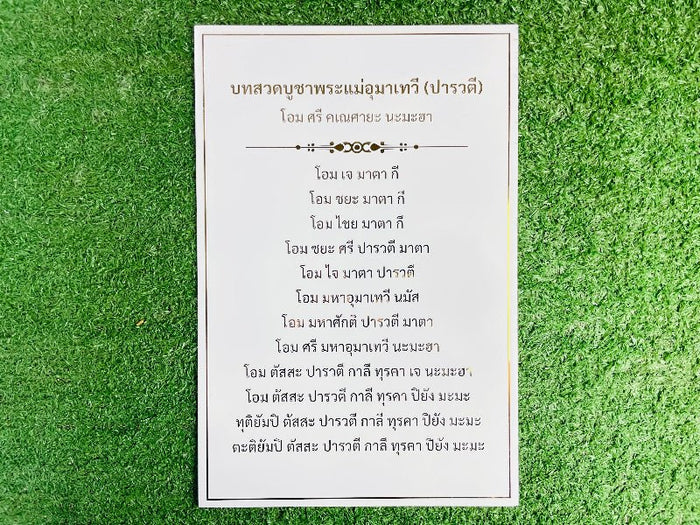 บทสวดบูชาพระแม่อุมาเทวี (ปารวตี)
โอม ศรี คเณศายะ นะมะฮา
โอม เจ มาตา กี
โอม ชยะ มาตา กี
โอม ไชย มาตา กี
โอม ชยะ ศรี ปารวตี มาตา
โอม ไจ มาตา ปารวตี
โอม มหาอุมาเทวี นมัส
โอม มหาศักติ ปารวตี มาตา
โอม ศรี มหาอุมาเทวี นะมะฮา
โอม ตัสสะ ปาราตี กาลี ทุรคา เจ นะมะฮา
โอม ตัสสะ ปารวตี กาลี ทุรคา ปิยัง มะมะ
ทุติยัมปิ ตัสสะ ปารวตี กาลี ทุรคา ปิยัง มะมะ
ตะติยัมปิ ตัสสะ ปารวตี กาลี ทุรคา ปิยัง มะมะ